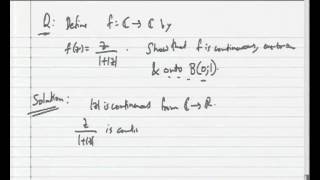 Q: Define f: ℂ → ℂ by
f(z) = z / 1+|z| . Show that f is continuous, one to one
& onto B(0;1)
Solution: |z| is continuous from ℂ → ℝ.
z / 1+|z| is conti